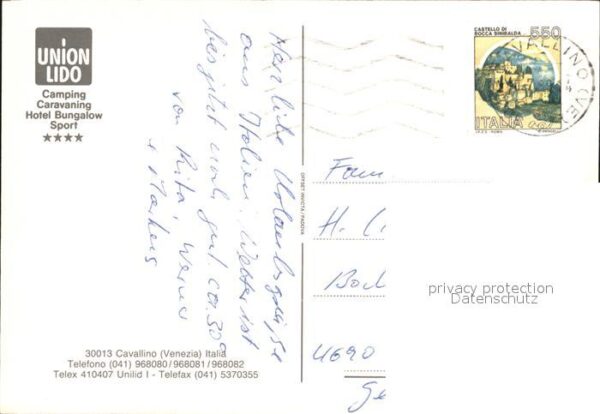 UNION
LIDO
Camping
Caravaning
Hotel Bungalow
Sport
★★★★
Herzliche Urlaubsgrüße
aus Italien. Wetter ist
bis jetzt noch gut ca. 30°
von Rita, Werner
+ Markus
30013 Cavallino (Venezia) Italia
Telefono (041) 968080/968081/968082
Telex 410407 Unilid I - Telefax (041) 5370355
OFFSET INVICTA / PADOVA
CASTELLO DI
ROCCA SINIBALDA
550
ITALIA
I.P.Z.S. ROMA
VALLINO (VE)
Fam
H.
Boch
4690
privacy protection
Datenschutz